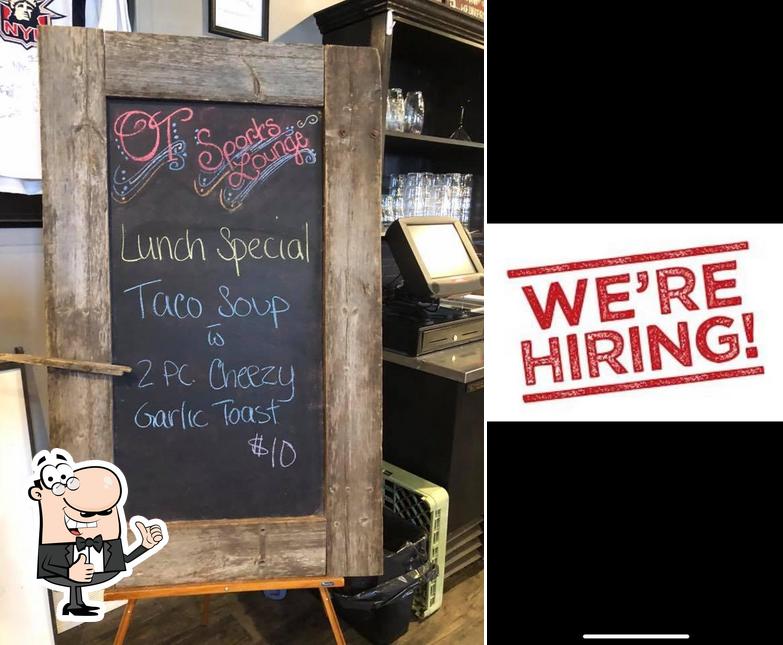 NY
OT Sports
Lounge
Lunch Special
Taco Soup
w
2 PC. Cheezy
Garlic Toast
$10
WE'RE
HIRING!